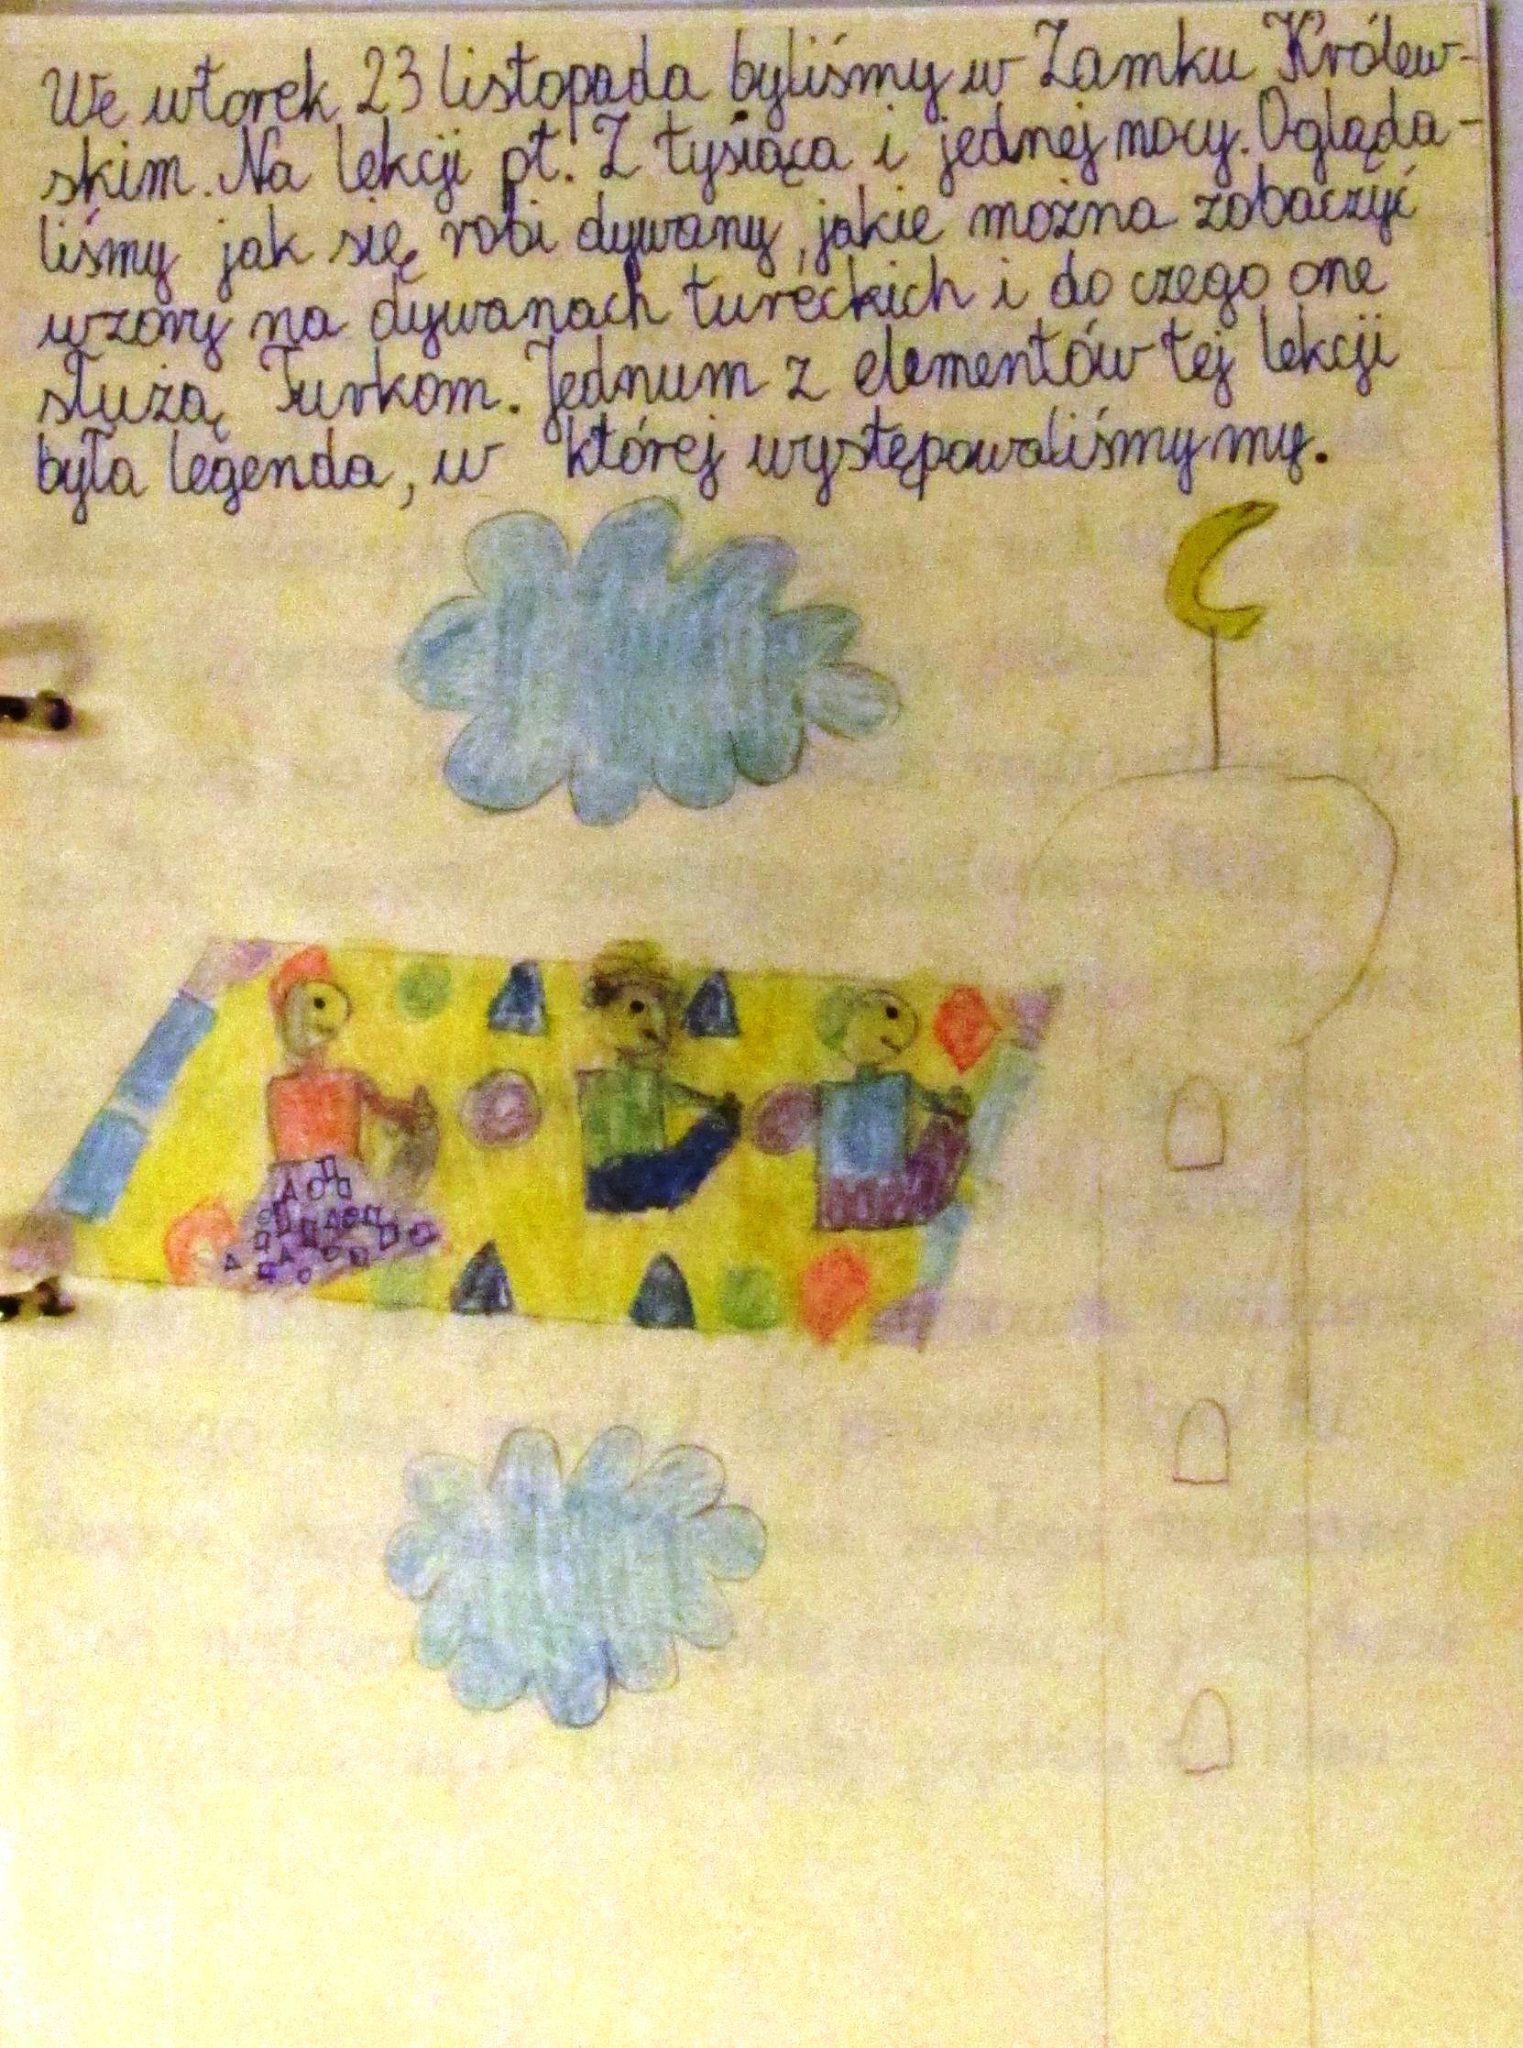 We wtorek 23 listopada byliśmy w Zamku Królew-
skim. Na lekcji pt. Z tysiąca i jednej nocy. Ogląda-
liśmy jak się robi dywany, jakie można zobaczyć
wzory na dywanach tureckich i do czego one
służą Turkom. Jednum z elementów tej lekcji
była legenda, w której występowaliśmy my.